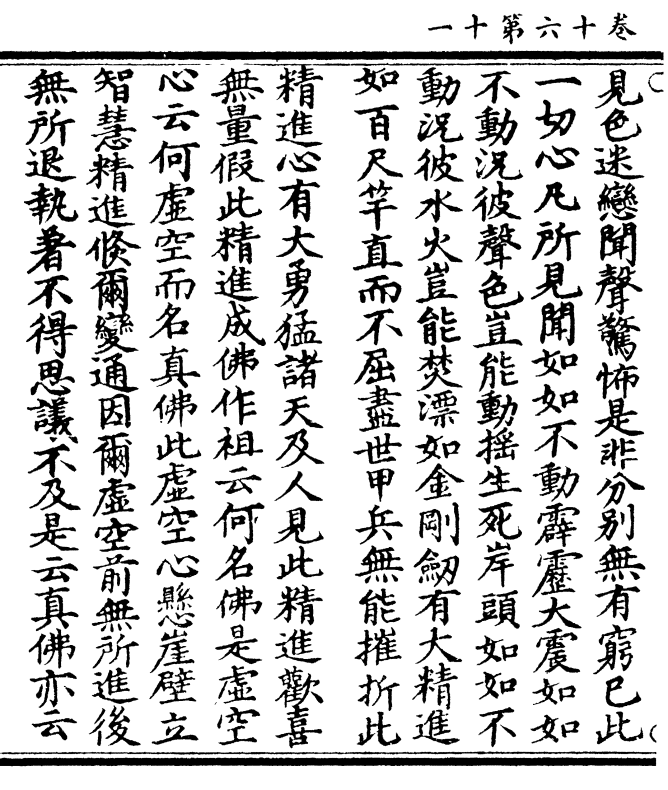 卷十六第十一
見色迷戀聞聲驚怖是非分別無有窮已此
一切心凡所見聞如如不動霹靂大震如如
不動況彼聲色豈能動搖生死岸頭如如不
動況彼水火豈能焚漂如金剛劒有大精進
如百尺竿直而不屈盡世甲兵無能摧折此
精進心有大勇猛諸天及人見此精進歡喜
無量假此精進成佛作祖云何名佛是虛空
心云何虛空而名真佛此虛空心懸崖壁立
智慧精進倐爾變通因爾虛空前無所進後
無所退執著不得思議不及是云真佛亦云